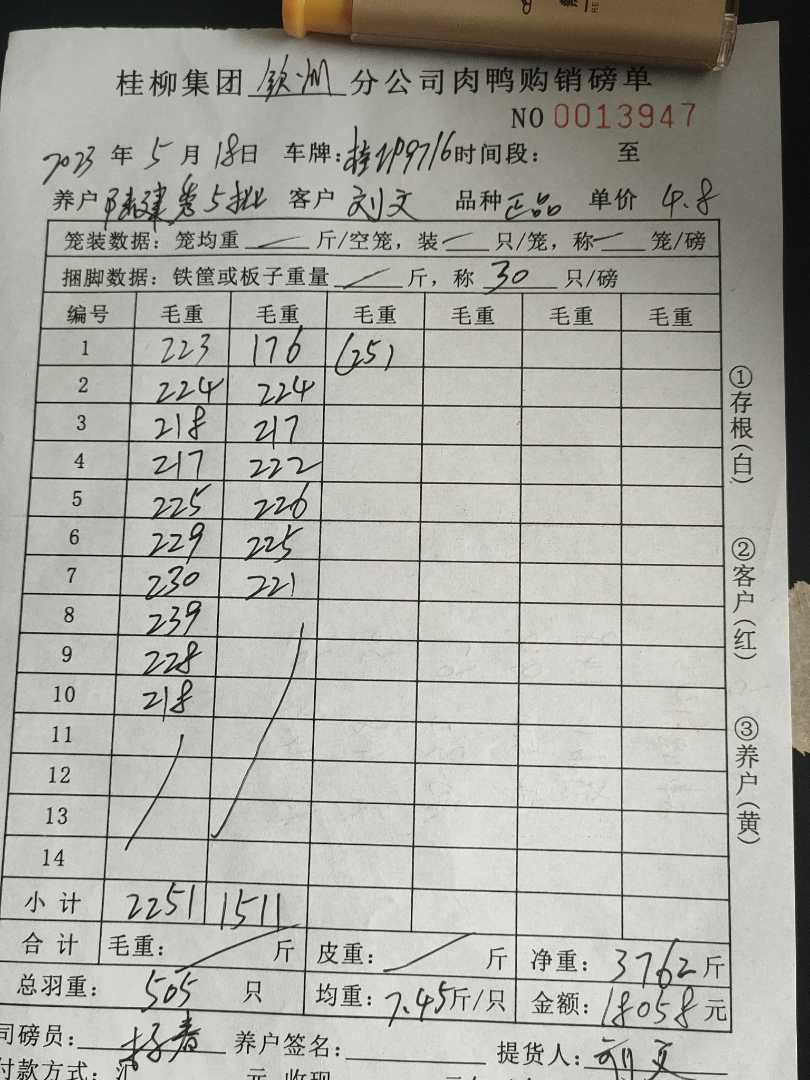 桂柳集团 钦州 分公司肉鸭购销磅单
NO 0013947
2023 年 5 月 18日 车牌: 桂 P9716 时间段: 至
养户 陆建 5批 客户 刘文 品种 正品 单价 4.8
笼装数据: 笼均重 斤/空笼, 装 只/笼, 称 笼/磅
捆脚数据: 铁筐或板子重量 斤, 称 30 只/磅
编号 毛重 毛重 毛重 毛重 毛重 毛重
1 223 176 (25)
2 224 224
3 218 217
4 217 222
5 225 226
6 229 225
7 230 221
8 239
9 228
10 218
11
12
13
14
小计 2251 1511
合计 毛重: 斤 皮重: 斤 净重: 3762 斤
总羽重: 505 只 均重: 7.45 斤/只 金额: 18058 元
司磅员: 春 养户签名: 提货人: 刘文
付款方式: 汇 元 收现
①存根(白)
②客户(红)
③养户(黄)